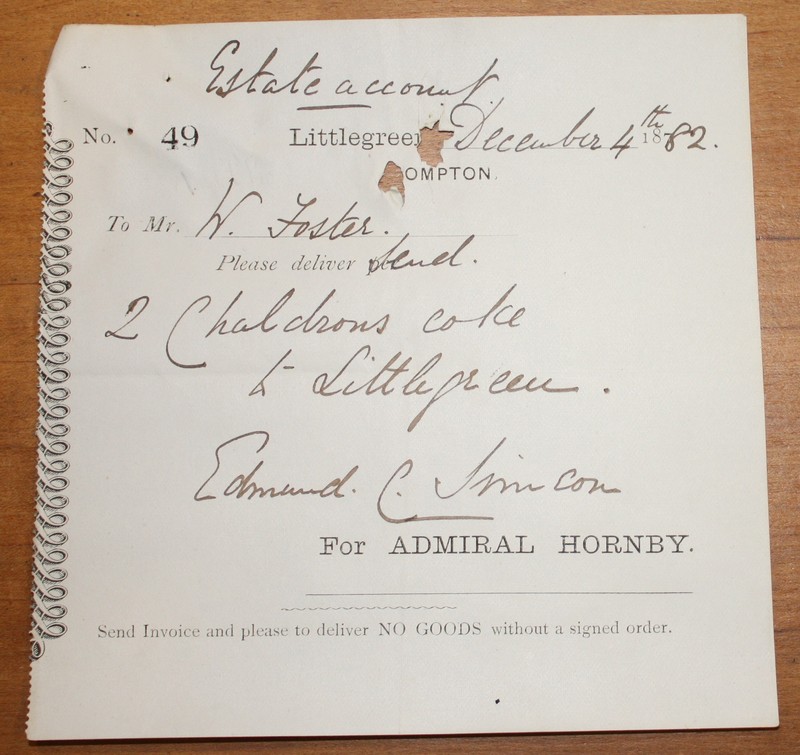 Estate account
No. 49 Littlegree December 4th 1882.
OMPTON.
To Mr. W. Foster.
Please deliver Send.
2 Chaldrons coke
to Littlegreen.
Edmund. C. Simcon
For ADMIRAL HORNBY.
Send Invoice and please to deliver NO GOODS without a signed order.